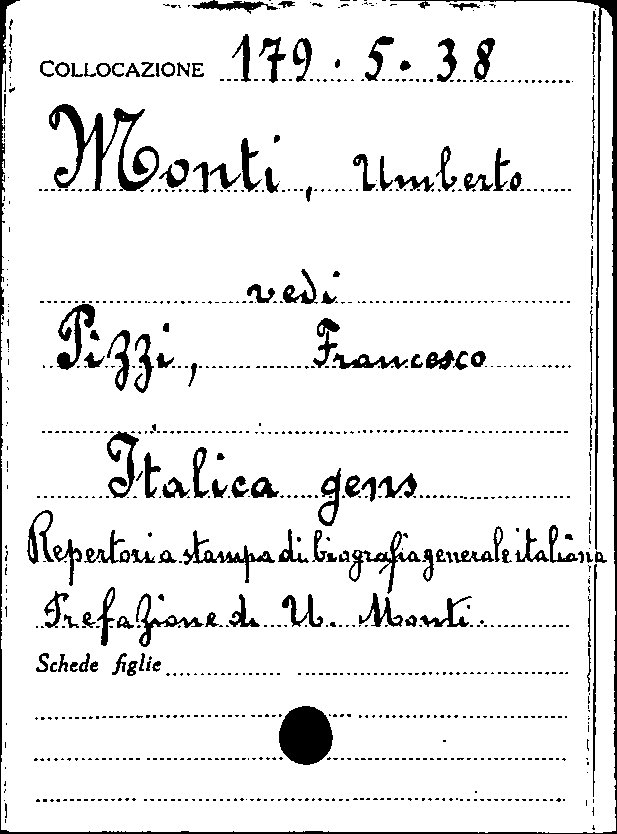 COLLOCAZIONE 179. 5. 38
Monti, Umberto
vedi
Pizzi, Francesco
Italica gens
Repertori a stampa di biografia generale italiana
Prefazione di U. Monti.
Schede figlie